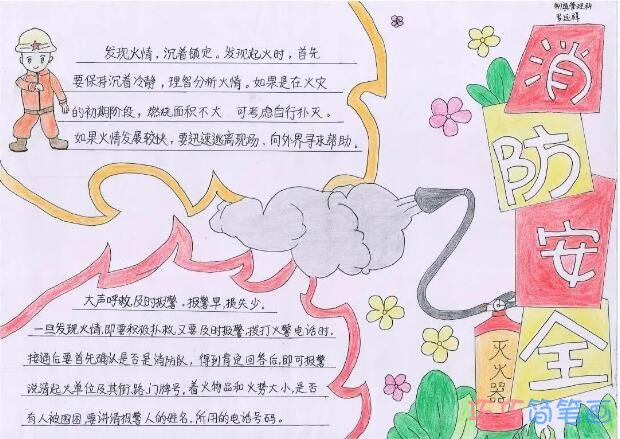 发现火情，沉着镇定。发现起火时，首先
要保持沉着冷静，理智分析火情。如果是在火灾
的初期阶段，燃烧面积不大 可考虑自行扑灭。
如果火情发展较快，要迅速逃离现场、向外界寻求帮助。
消
防
安
全
灭火器
大声呼救，及时报警。报警早，损失少。
一旦发现火情，即要积极扑救，又要及时报警。拨打火警电话时，
接通后要首先确认是否是消防队，得到肯定回答后，即可报警
说清起火单位及其街、路、门牌号，着火物品和火势大小，是否
有人被困困要讲清报警人的姓名、所用的电话号码。
简笔画